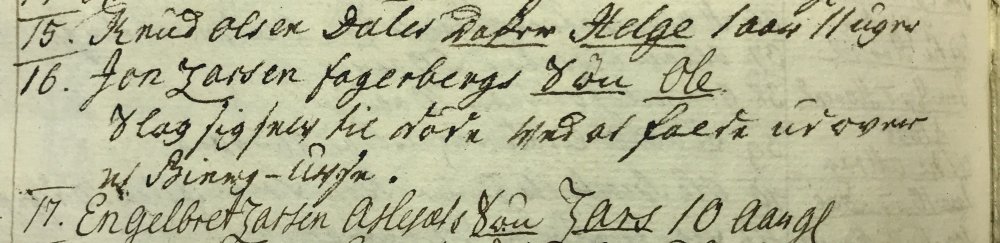 15. Knud Olsen Dales Datter Helge 1 aar 11 uger
16. Jon Larsen fagerbergs Søn Ole
Slog sig selv til døde ved at falde ud over
et Bierg-
17. Engelbret Larsen Søn Lars 10 Aar gl